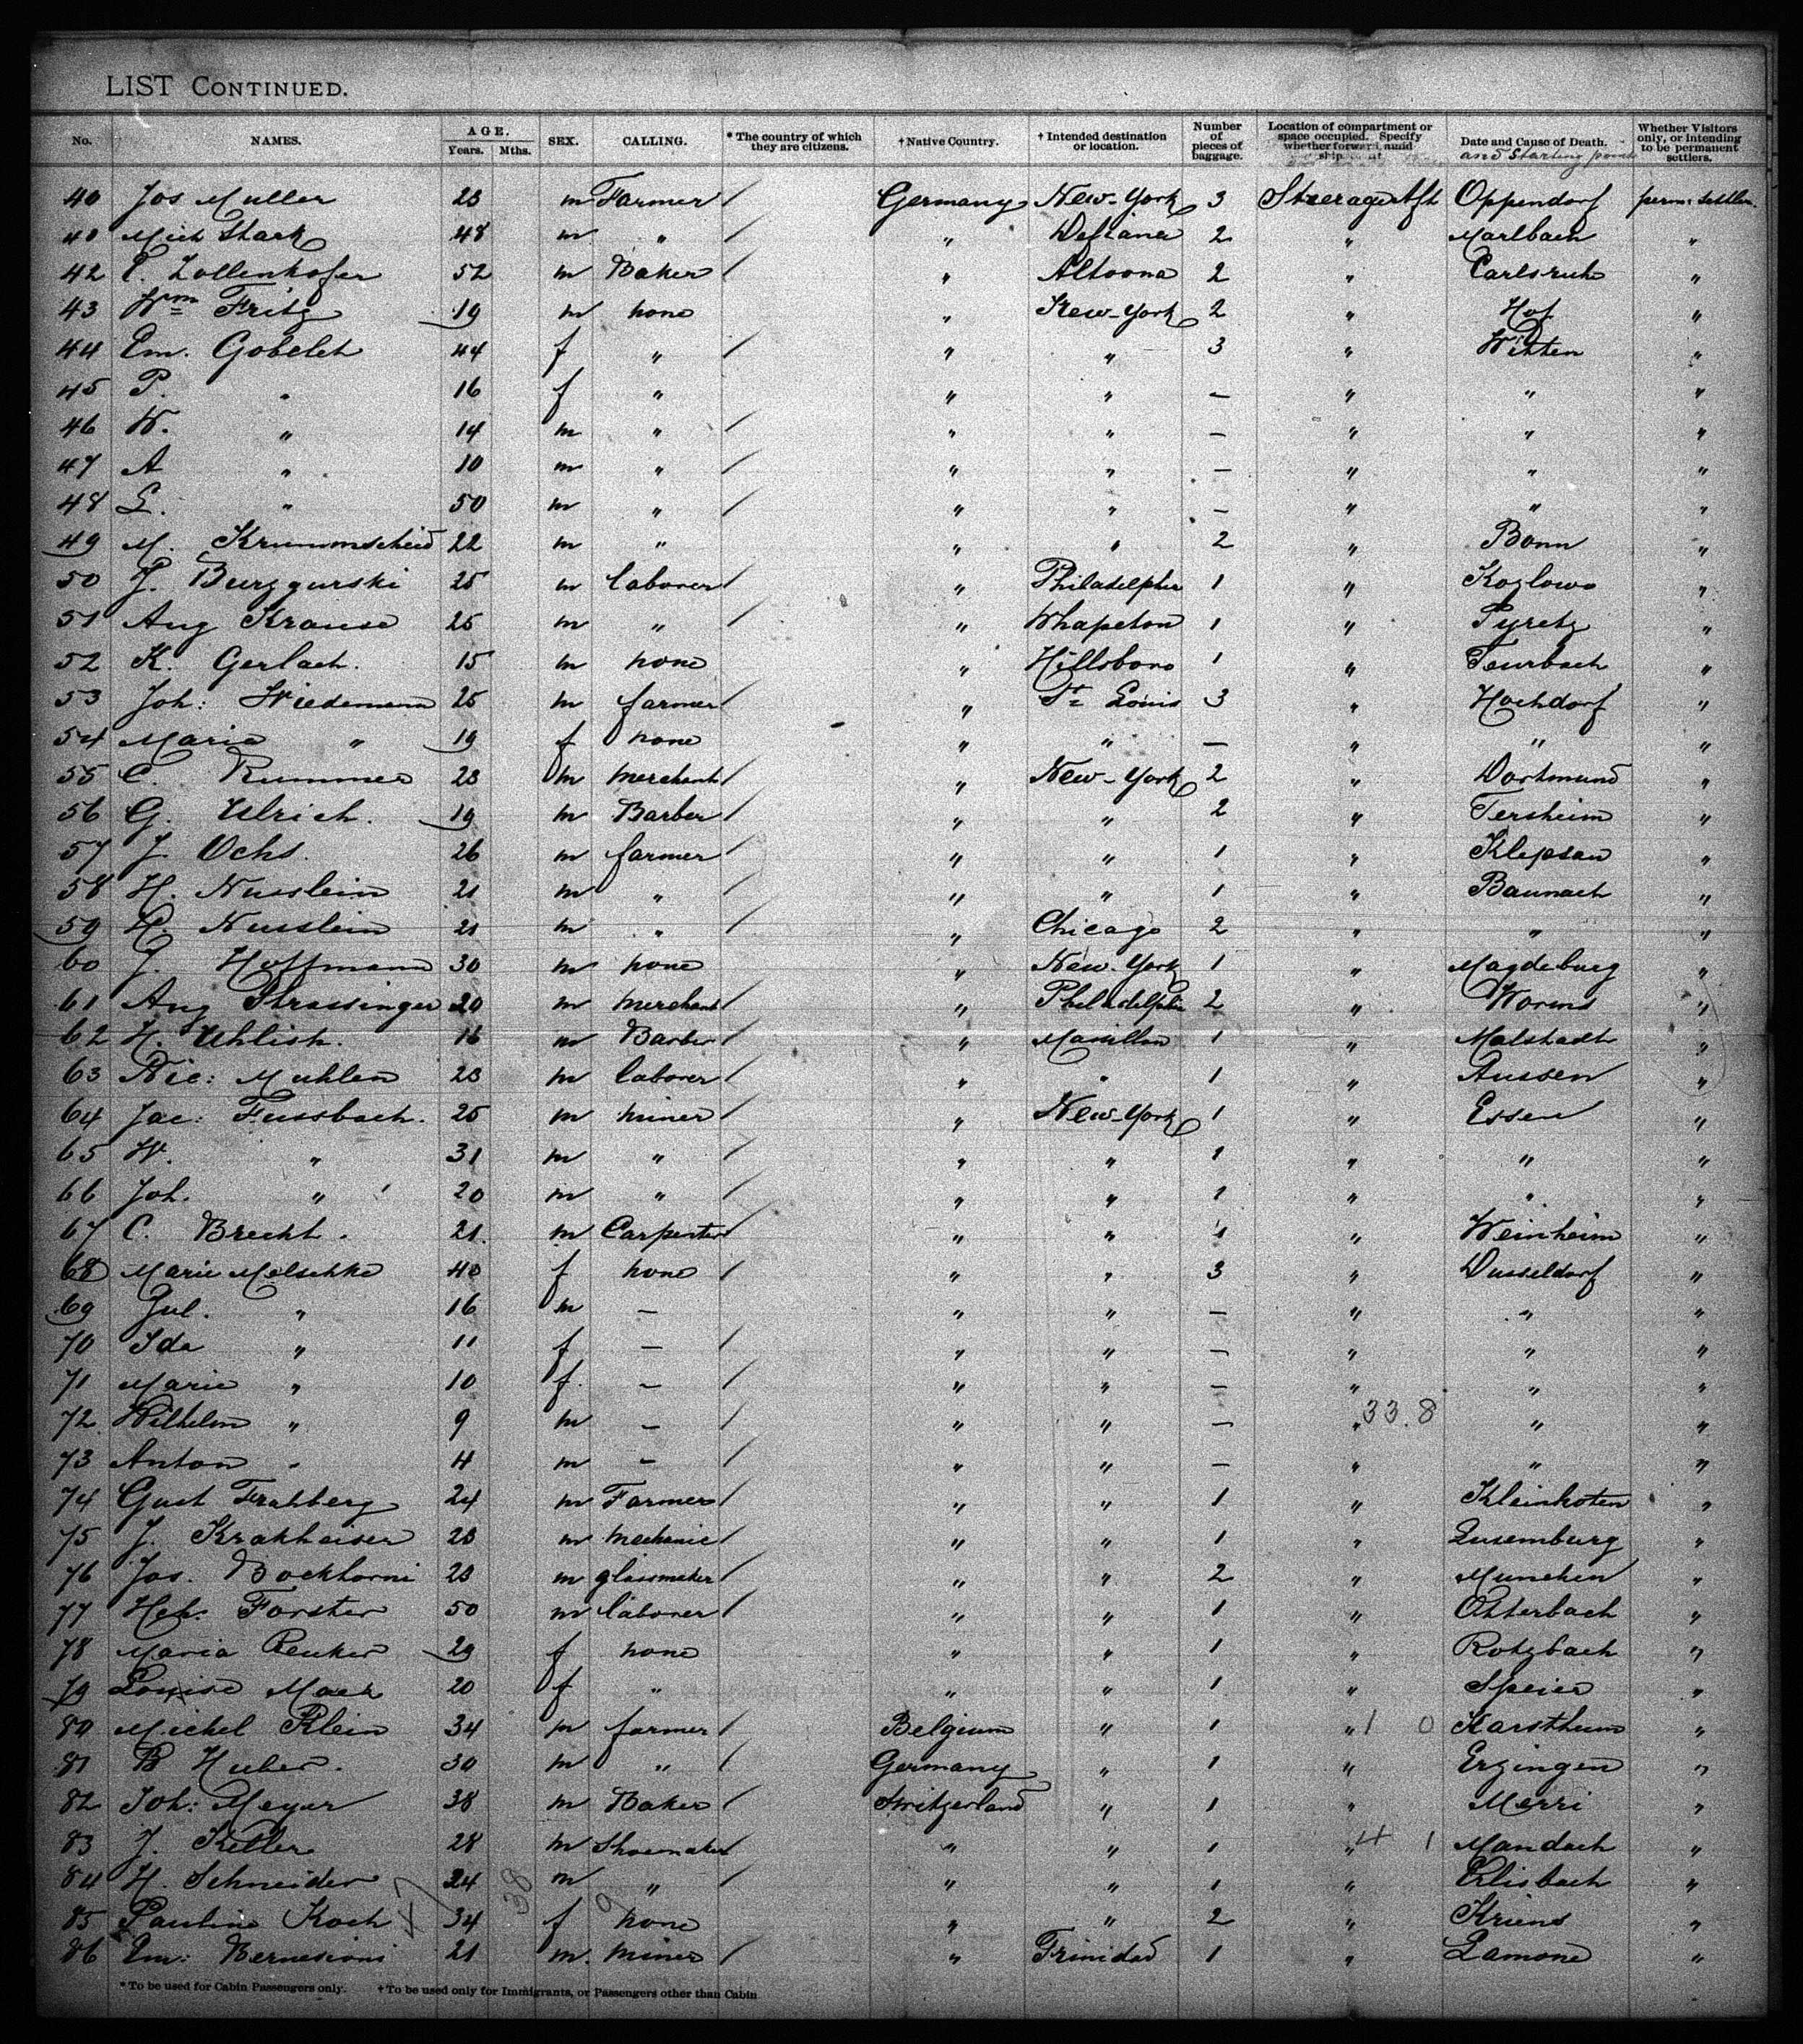 LIST CONTINUED.
No. NAMES. AGE. Years. Mths. SEX. CALLING. * The country of which they are citizens. † Native Country. † Intended destination or location. Number of pieces of baggage. Location of compartment or space occupied. Specify whether forward, amid Date and Cause of Death. and starting point Whether Visitors only, or intending to be permanent settlers.
40 Jos Muller 23 m Farmer / Germany New-York 3 Steerage Aft Oppendorf perm: settler.
40 Mich Stark 48 m " / " 2 " Marlbach "
42 C. Zollenkofer 52 m Baker / " Altoona 2 " Carlsruh "
43 Wm Fritz 19 m none " New-York 2 " Hof "
44 Em. Gobelet 44 f " / " " 3 " Witten "
45 P. " 16 f " " " — " " "
46 W. " 14 m " / " " — " " "
47 A " 10 m " / " " — " " "
48 L. " 50 m " / " " — " " "
49 M. Krummscheid 22 m " " " 2 " Bonn "
50 25 m laborer / " Philadelphia 1 " Koslowo "
51 Aug Krause 25 m " / " Whapeton 1 " Pyretz "
52 K. Gerlach. 15 m none " Hillsboro 1 " Feurbach "
53 Joh: Wiedemann 25 m farmer / " St Louis 3 " Hochdorf "
54 Maria " 19 f none " " — " " "
55 C. Rummer 23 m merchant / " New-York 2 " Dortmund "
56 G. Ulrich. 19 m Barber / " " 2 " Tersheim "
57 J. Ochs. 26 m farmer / " " 1 " Klepsau "
58 H. Nusslein 21 m " / " " 1 " Baunach "
59 H. Nusslein 21 m " / " Chicago 2 " " "
60 J. Hoffmann 30 m none " New-York 1 " Magdeburg "
61 Aug Strassinger 20 m merchant / " Philadelphia 2 " Worms "
62 H. Uhlish. 16 m Barber / " Masillon 1 " Malstadt "
63 Nic: Muhlen 23 m laborer / " " 1 " Aussen "
64 Jac: Fussbach. 25 m miner / " New-York 1 " Essen "
65 W. " 31 m " / " " 1 " " "
66 Joh. " 20 m " / " " 1 " " "
67 C. Brecht. 21. m Carpenter / " " 1 " Weinheim "
68 Marie Melschke 40 f none / " " 3 " Dusseldorf "
69 Jul. " 16 m — " " — " " "
70 Ida " 11 f — / " " — " " "
71 Marie " 10 f. — / " " — " " "
72. Wilhelm " 9 m — / " " — " 33.8 " "
73 Anton " 4 m — / " " — " " "
74 Gust Frahberg 24 m Farmer / " " 1 " Kleinhoten "
75 J. Krakheiser 23 m mechanic / " " 1 " Luxemburg "
76 Jos. Bockhorni 23 m glassmaker / " " 2 " Munchen "
77 Hch. Forster 50 m laborer / " " 1 " Otterbach "
78 Maria Reuker 29 f none " " 1 " Rotzbach "
79 Louise Mack 20 f " " " 1 " Speier "
80 Michel Klein 34 m farmer / Belgium " 1 " 1 0 Karstheim "
81 B Huber. 30 m " / Germany " 1 " Erzingen "
82 Joh: Meyer 38 m Baker / Switzerland " 1 " Merri "
83 J. Keller 28 m Shoemaker / " " 1 " 4 1 Mandach "
84 H. Schneider 24 m " / " " 1 " Erlisbach "
85 Pauline Koch 47 34 38 f 9 none " " 2 " Kriens "
86 Em: Bernesioni 21 m. miner / " Trinidad 1 " Lamone "
* To be used for Cabin Passengers only. † To be used only for Immigrants, or Passengers other than Cabin